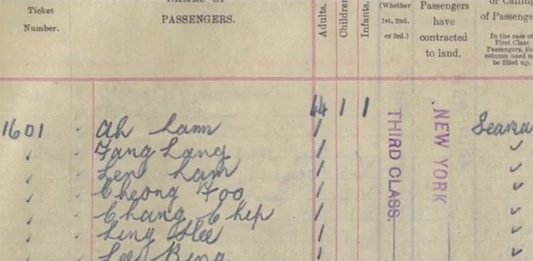 Ticket Number.
NAMES OF PASSENGERS.
Adults.
Children
Infants.
(Whether 1st, 2nd, or 3rd.)
Passengers have contracted to land.
of Passenge
In the case of First Class Passengers, this column need not be filled up.
44 1 1
1601 Ah Lam Seama
Fang Lang
Len Lam
Cheong Foo
Chang Chip
Ling Hee
Lee Bing
THIRD CLASS.
NEW YORK